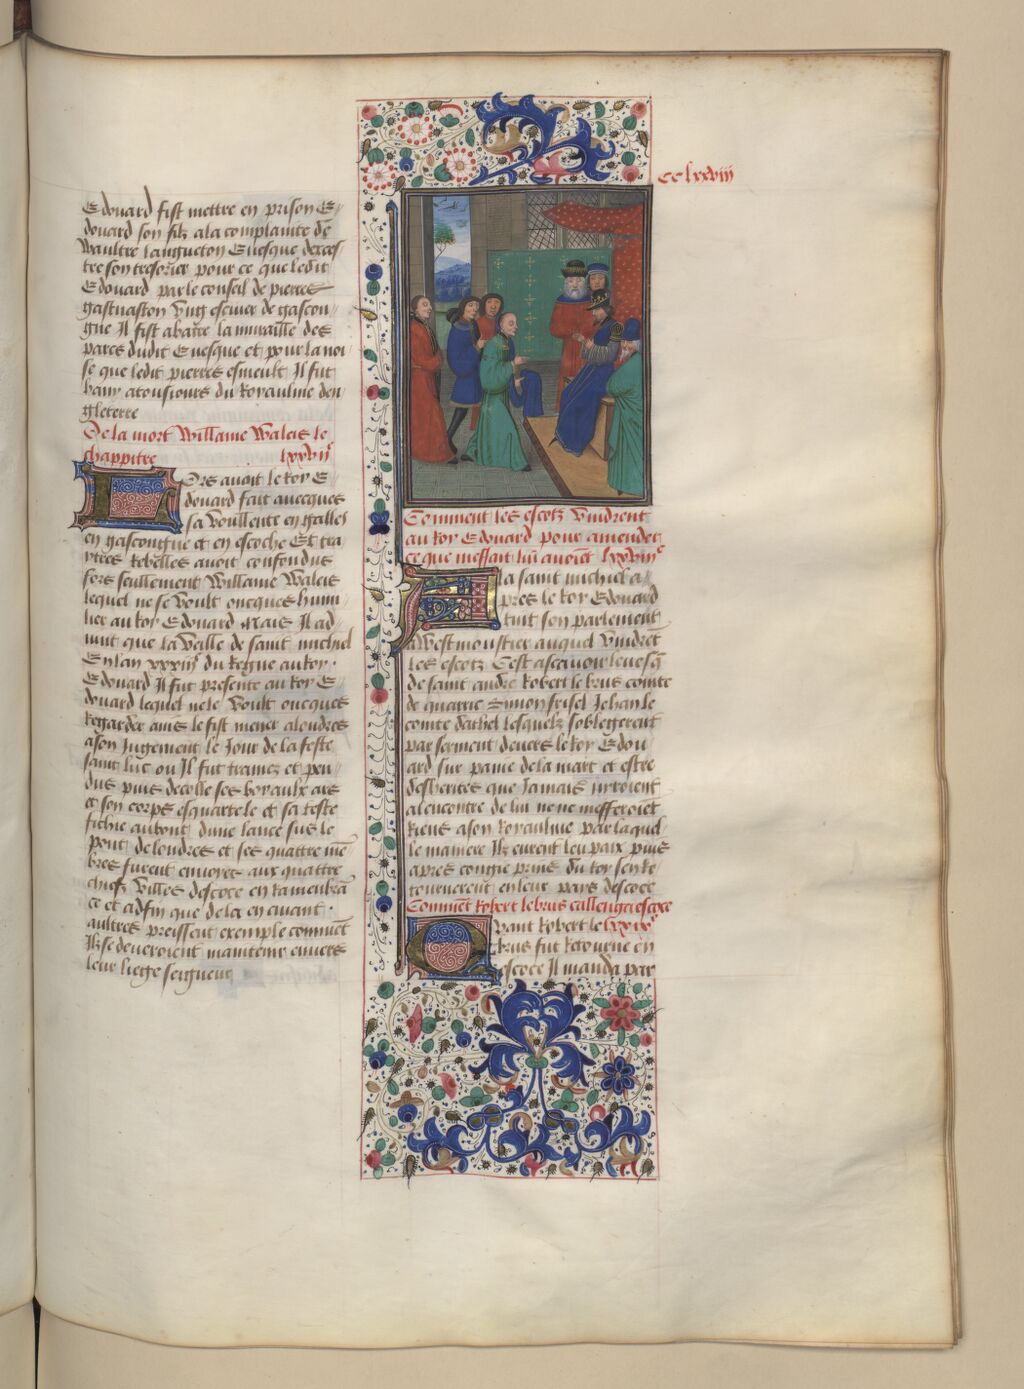 cclxxviii
Edouard fist mettre en prison E
douard son filz a la complainte de
Waultre langueton Evesque de
tre son tresorier pour ce que ledit
Edouard par le conseil de pierres
gastuaston ung escuier de gascon
gne Il fist abatre la muraille des
parcs dudit Evesque et pour la noi
se que ledit pierres esmeult Il fut
bany a tousiours du Royaulme den
gleterre
De la mort Willame Waleis le
chappitre lxxvii
Ors avoit le Roy E
douard fait avecques
sa voullente en galles
en gascongne et en escoche Et tra
ytres Rebelles avoit confondus
fors seullement Willame Waleis
lequel ne se voult oncques humi
lier au Roy Edouard Mais Il ad
vint que la veille de saint michiel
En lan xxxiii du Regne au Roy
Edouard Il fut presente au Roy E
douard lequel ne le voult oncques
Regarder ains le fist mener a londres
a son Jugement le Jour de la feste
saint luc ou Il fut traine et pen
dus puis decolle ses boyaulx ars
et son corps esquartele et sa teste
fichie au bout dune lance sus le
pont de londres et ses quattre me
bres furent envoyes aux quattre
chiefz villes descoce en Ramembra
ce et adfin que de la en avant
aultres preissent exemple comment
Ilz se devroient maintenir envers
leur liege seigneur
Comment les escotz vindrent
au Roy Edouard pour amender
ce que meffait lui avoient lxxviii
A la saint michiel a
pres le Roy Edouard
tint son parlement
a Westmoustier auquel vindret
les escotz Cest ascavoir levesq
de saint andre Robert le brus comte
de Simon frisel Jehan le
comte dathel lesquelz soblegerent
par serment devers le Roy Edou
ard sur paine de la mort et estre
desherites que Jamais
alencontre de lui ne ne mefferoiet
Riens a son Royaulme par laquel
le maniere Ilz eurent leu paix puis
apres congie prins du Roy sen Re
tournerent en leur pays descoce
Comment Robert le brus callenga escoce
Quant Robert le lxxix
brus fut Retourne en
escoce Il manda par